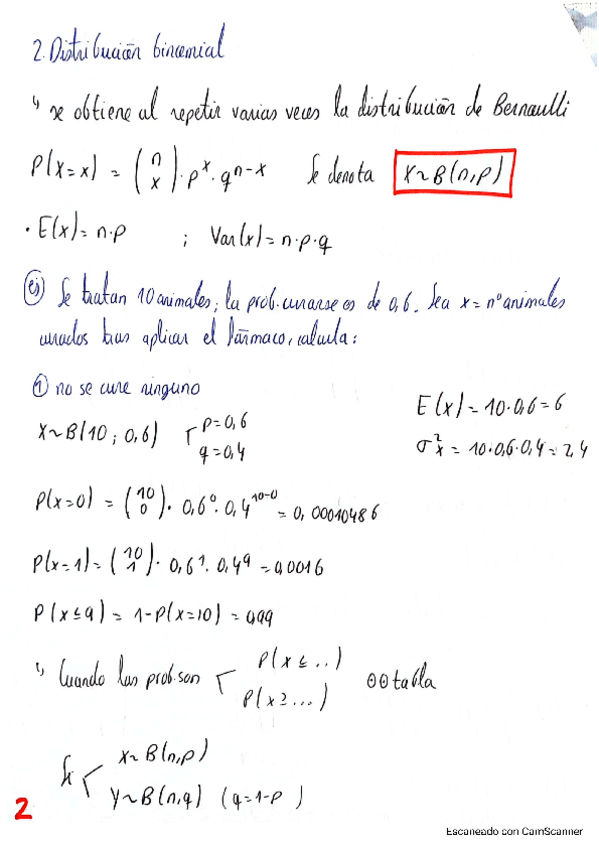 2. Distribución binomial
↳ se obtiene al repetir varias veces la distribución de Bernaulli
P(X=x) = (n x) · p^x · q^n-x Se denota X~B(n,p)
· E(x) = n·p ; Var(x) = n·p·q
ej) Se tratan 10 animales; la prob. curarse es de 0,6. Sea x = nº animales
curados tras aplicar el fármaco, calcula:
① no se cure ninguno
X~B(10; 0,6) p=0,6 q=0,4
E(x) = 10·0,6 = 6
σ²x = 10·0,6·0,4 = 2,4
P(x=0) = (10 0) · 0,6^0 · 0,4^10-0 = 0,00010486
P(x=1) = (10 1) · 0,6^1 · 0,4^9 = 0,0016
P(x≤9) = 1-P(x=10) = 0,99
↳ Cuando las prob. son P(x≤..)
P(x≥...) tabla
Si X~B(n,p)
Y~B(n,q) (q=1-p)
2
Escaneado con CamScanner